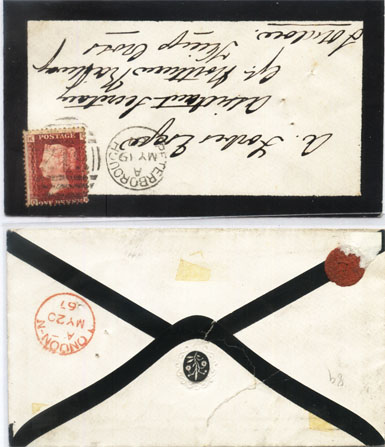 A. Forbes Esqre
Assistant Secretary
Gt. Northern Railway
Kings Cross
London
POSTAGE
PETERBOROUGH
A
MY 19
LONDON-N
A
MY 20
67